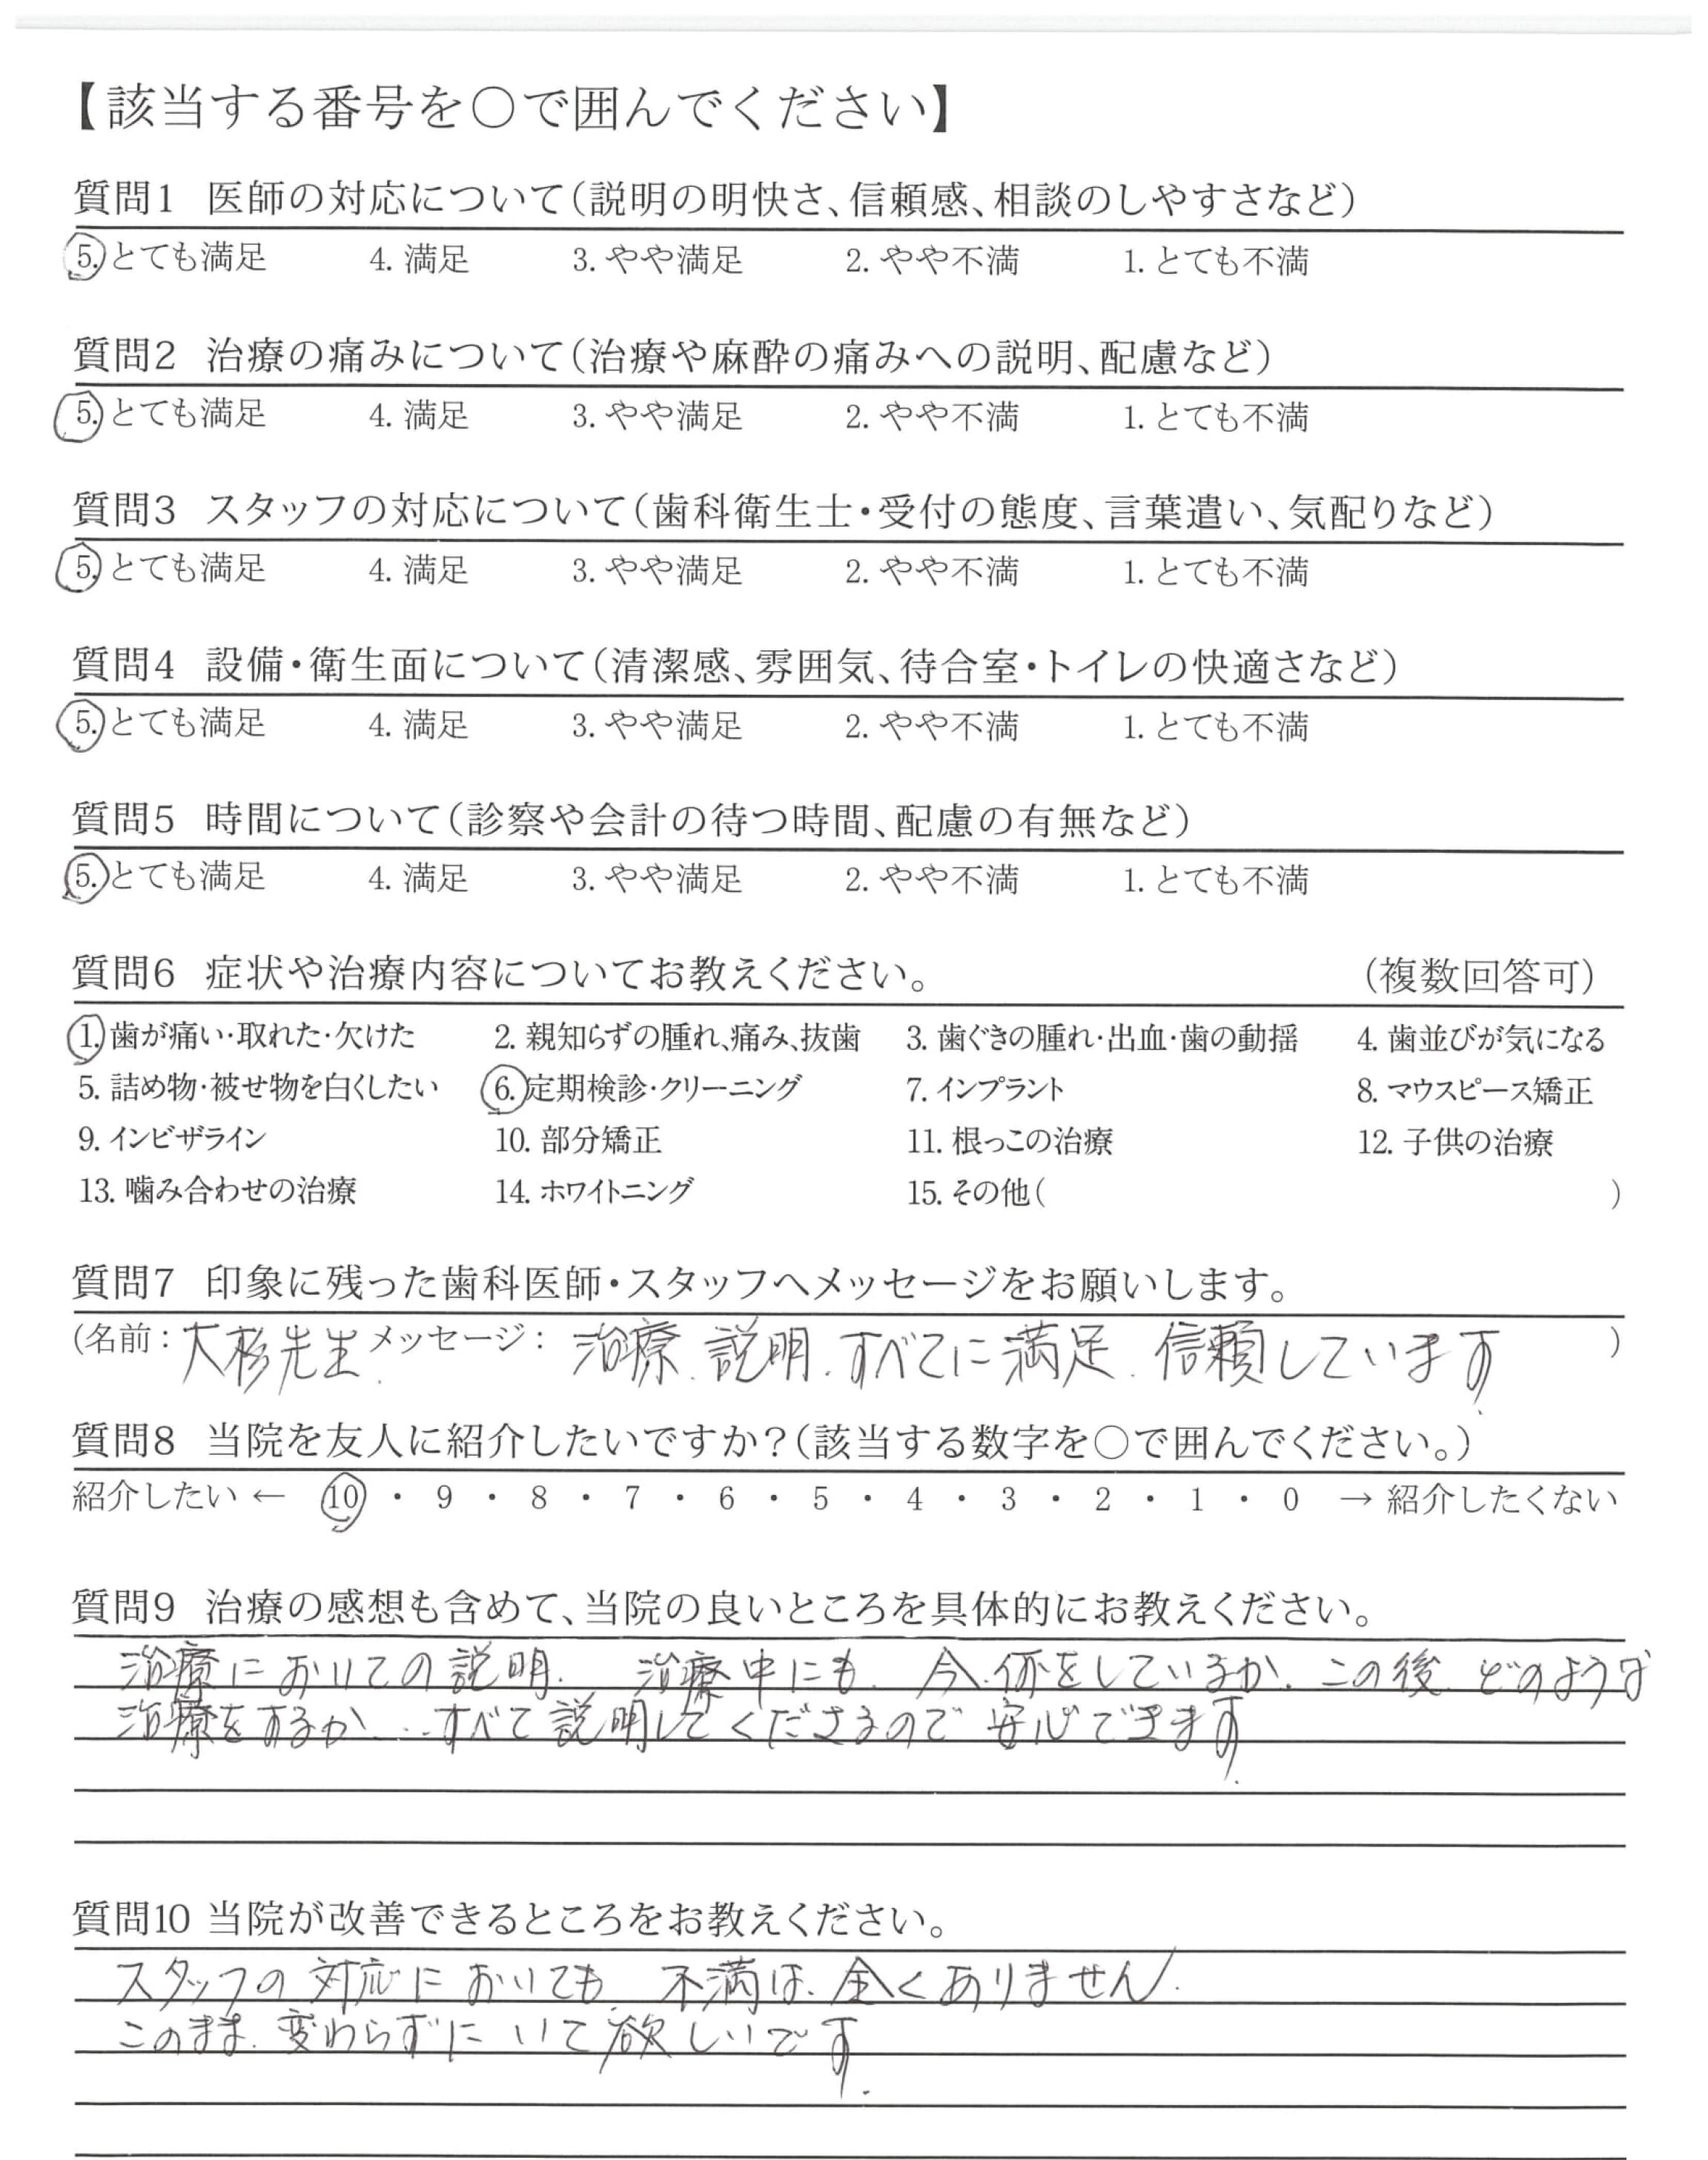 【該当する番号を○で囲んでください】
質問1 医師の対応について(説明の明快さ、信頼感、相談のしやすさなど)
5. とても満足 4. 満足 3. やや満足 2. やや不満 1. とても不満
質問2 治療の痛みについて(治療や麻酔の痛みへの説明、配慮など)
5. とても満足 4. 満足 3. やや満足 2. やや不満 1. とても不満
質問3 スタッフの対応について(歯科衛生士・受付の態度、言葉遣い、気配りなど)
5. とても満足 4. 満足 3. やや満足 2. やや不満 1. とても不満
質問4 設備・衛生面について(清潔感、雰囲気、待合室・トイレの快適さなど)
5. とても満足 4. 満足 3. やや満足 2. やや不満 1. とても不満
質問5 時間について(診察や会計の待つ時間、配慮の有無など)
5. とても満足 4. 満足 3. やや満足 2. やや不満 1. とても不満
質問6 症状や治療内容についてお教えください。 (複数回答可)
1. 歯が痛い・取れた・欠けた 2. 親知らずの腫れ、痛み、抜歯 3. 歯ぐきの腫れ・出血・歯の動揺 4. 歯並びが気になる
5. 詰め物・被せ物を白くしたい 6. 定期検診・クリーニング 7. インプラント 8. マウスピース矯正
9. インビザライン 10. 部分矯正 11. 根っこの治療 12. 子供の治療
13. 噛み合わせの治療 14. ホワイトニング 15. その他( )
質問7 印象に残った歯科医師・スタッフへメッセージをお願いします。
(名前：大杉先生. メッセージ： 治療. 説明. すべてに満足. 信頼しています. )
質問8 当院を友人に紹介したいですか？(該当する数字を○で囲んでください。)
紹介したい ← 10 ・ 9 ・ 8 ・ 7 ・ 6 ・ 5 ・ 4 ・ 3 ・ 2 ・ 1 ・ 0 → 紹介したくない
質問9 治療の感想も含めて、当院の良いところを具体的にお教えください。
治療においての説明. 治療中にも. 今.何をしているか. この後. どのような
治療をするか...すべて説明してくださるので安心できます.
質問10 当院が改善できるところをお教えください。
スタッフの対応においても. 不満は. 全くありません.
このまま. 変わらずにいて欲しいです.